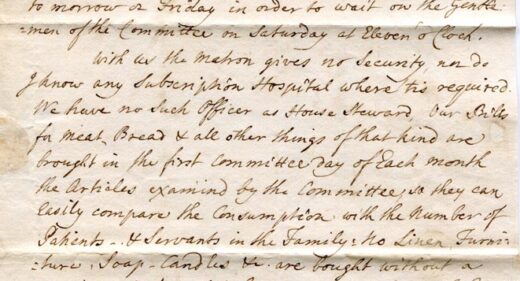 to morrow or Friday in order to wait on the Gentle-
=men of the Committee on Saturday at Eleven o'Clock.
With us the Matron gives no Security, nor do
I know any Subscription Hospital where tis required.
We have no Such Officer as House Steward, Our Bills
for Meat, Bread & all other things of that kind are
brought in the first Committee day of Each month
the Articles examind by the Committee, so they can
Easily compare the Consumption with the Number of
Patients - & Servants in the Family: No Linen, Furni-
=ture, Soap - Candles &c. are bought without a